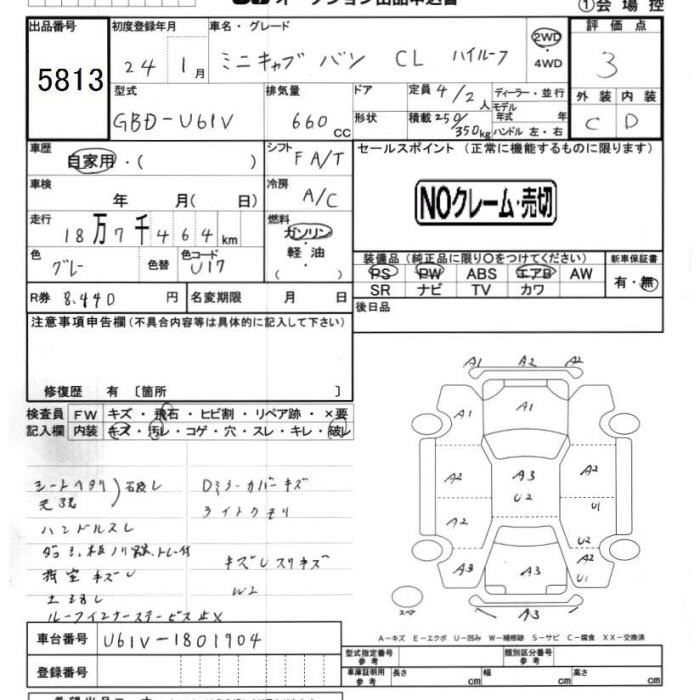 オークション出品申込書
①会場控
出品番号 初度登録年月 車名・グレード 評価点
5813 24 1月 ミニキャブ バン CL ハイルーフ 2WD ・ 4WD 3
型式 排気量 ドア 定員 4/2人 ディーラー・並行 外装 内装
GBD-U61V 660 CC 形状 積載 250/350kg モデル年式 年 ハンドル 左・右 C D
車歴 自家用・( ) シフト F A/T セールスポイント (正常に機能するものに限ります)
車検 年 月( 日) 冷房 A/C
NOクレーム・売切
走行 18万7千464km 燃料 ガソリン・軽油・( )
色 グレー 色替 色コード U17
装備品(純正品に限り○をつけてください) 新車保証書
PS PW ABS エアB AW 有・無
SR ナビ TV カワ
R券 8,440 円 名変期限 月 日 後日品
注意事項申告欄(不具合内容等は具体的に記入して下さい)
修復歴 有 〔箇所 〕
検査員 FW キズ・飛石・ヒビ割・リペア跡・×要
記入欄 内装 キズ・汚レ・コゲ・穴・スレ・キレ・破レ
A1 A2 A2
A1 A1
A2 A3 A2
U2 U1
A2 U2
A3 A3 A2
U1
A3
スペア
シートヘタリ
Dミラーカバーキズ
ライトクモリ
ハンドルスレ
キズUスリキズ
荷室キズU
W2
A-キズ E-エクボ U-凹み W-補修跡 S-サビ C-腐食 XX-交換済
車台番号 U61V-1801904
登録番号
型式指定番号 参考 類別区分番号 参考
車庫証明用 参考 長さ cm 幅 cm 高さ cm